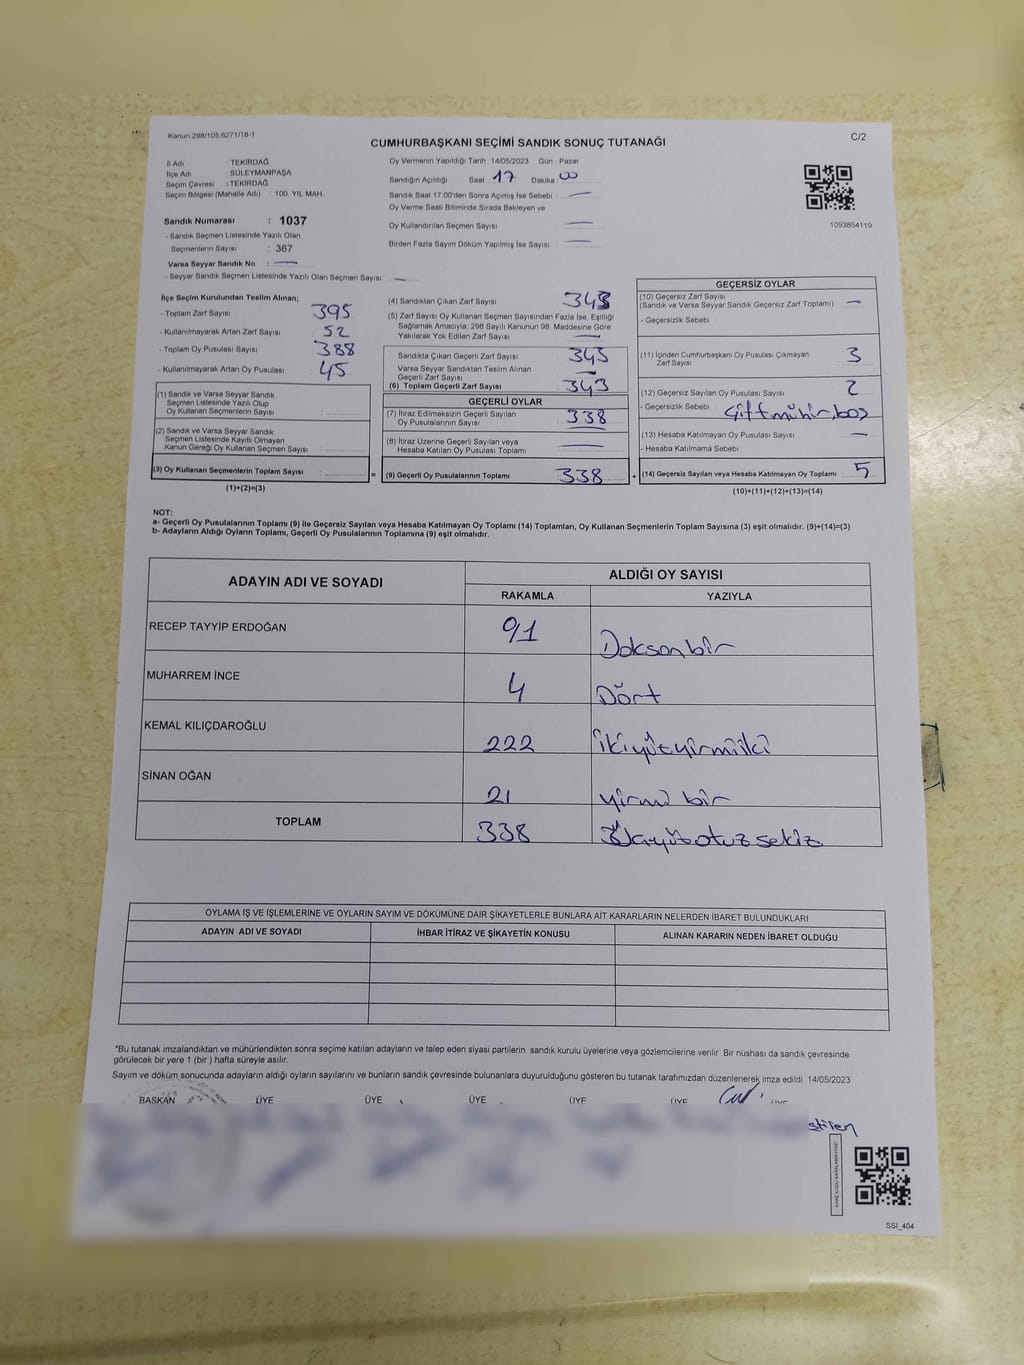 Kanun:298/105,6271/16-1
CUMHURBAŞKANI SEÇİMİ SANDIK SONUÇ TUTANAĞI
C/2
İl Adı : TEKİRDAĞ
İlçe Adı : SÜLEYMANPAŞA
Seçim Çevresi : TEKİRDAĞ
Seçim Bölgesi (Mahalle Adı) : 100. YIL MAH.
Sandık Numarası : 1037
- Sandık Seçmen Listesinde Yazılı Olan
Seçmenlerin Sayısı : 367
Varsa Seyyar Sandık No : —
- Seyyar Sandık Seçmen Listesinde Yazılı Olan Seçmen Sayısı : —
Oy Vermenin Yapıldığı Tarih : 14/05/2023 Gün : Pazar
Sandığın Açıldığı Saat : 17 Dakika : 00
Sandık Saat 17.00'den Sonra Açılmış İse Sebebi : —
Oy Verme Saati Bitiminde Sırada Bekleyen ve
Oy Kullandırılan Seçmen Sayısı : —
Birden Fazla Sayım Döküm Yapılmış İse Sayısı : —
1093854119
İlçe Seçim Kurulundan Teslim Alınan;
- Toplam Zarf Sayısı : 395
- Kullanılmayarak Artan Zarf Sayısı : 52
- Toplam Oy Pusulası Sayısı : 388
- Kullanılmayarak Artan Oy Pusulası : 45
(1) Sandık ve Varsa Seyyar Sandık
Seçmen Listesinde Yazılı Olup
Oy Kullanan Seçmenlerin Sayısı :
(2) Sandık ve Varsa Seyyar Sandık
Seçmen Listesinde Kayıtlı Olmayan
Kanun Gereği Oy Kullanan Seçmen Sayısı :
(3) Oy Kullanan Seçmenlerin Toplam Sayısı :
(1)+(2)=(3)
(4) Sandıktan Çıkan Zarf Sayısı : 343
(5) Zarf Sayısı Oy Kullanan Seçmen Sayısından Fazla İse, Eşitliği
Sağlamak Amacıyla, 298 Sayılı Kanunun 98. Maddesine Göre
Yakılarak Yok Edilen Zarf Sayısı : —
Sandıkta Çıkan Geçerli Zarf Sayısı : 343
Varsa Seyyar Sandıktan Teslim Alınan
Geçerli Zarf Sayısı : —
(6) Toplam Geçerli Zarf Sayısı : 343
GEÇERLİ OYLAR
(7) İtiraz Edilmeksizin Geçerli Sayılan
Oy Pusulalarının Sayısı : 338
(8) İtiraz Üzerine Geçerli Sayılan veya
Hesaba Katılan Oy Pusulası Toplamı : —
= (9) Geçerli Oy Pusulalarının Toplamı : 338
GEÇERSİZ OYLAR
(10) Geçersiz Zarf Sayısı : —
(Sandık ve Varsa Seyyar Sandık Geçersiz Zarf Toplamı)
- Geçersizlik Sebebi :
(11) İçinden Cumhurbaşkanı Oy Pusulası Çıkmayan
Zarf Sayısı : 3
(12) Geçersiz Sayılan Oy Pusulası Sayısı : 2
- Geçersizlik Sebebi : Çift mühür, boş
(13) Hesaba Katılmayan Oy Pusulası Sayısı : —
- Hesaba Katılmama Sebebi :
+ (14) Geçersiz Sayılan veya Hesaba Katılmayan Oy Toplamı : 5
(10)+(11)+(12)+(13)=(14)
NOT:
a- Geçerli Oy Pusulalarının Toplamı (9) ile Geçersiz Sayılan veya Hesaba Katılmayan Oy Toplamı (14) Toplamları, Oy Kullanan Seçmenlerin Toplam Sayısına (3) eşit olmalıdır. (9)+(14)=(3)
b- Adayların Aldığı Oyların Toplamı, Geçerli Oy Pusulalarının Toplamına (9) eşit olmalıdır.
ADAYIN ADI VE SOYADI
ALDIĞI OY SAYISI
RAKAMLA YAZIYLA
RECEP TAYYİP ERDOĞAN 91 Doksanbir
MUHARREM İNCE 4 Dört
KEMAL KILIÇDAROĞLU 222 ikiyüzyirmiiki
SİNAN OĞAN 21 yirmi bir
TOPLAM 338 otuz sekiz
OYLAMA İŞ VE İŞLEMLERİNE VE OYLARIN SAYIM VE DÖKÜMÜNE DAİR ŞİKAYETLERLE BUNLARA AİT KARARLARIN NELERDEN İBARET BULUNDUKLARI
ADAYIN ADI VE SOYADI İHBAR İTİRAZ VE ŞİKAYETİN KONUSU ALINAN KARARIN NEDEN İBARET OLDUĞU
*Bu tutanak imzalandıktan ve mühürlendikten sonra seçime katılan adayların ve talep eden siyasi partilerin sandık kurulu üyelerine veya gözlemcilerine verilir. Bir nüshası da sandık çevresinde
görülecek bir yere 1 (bir ) hafta süreyle asılır.
Sayım ve döküm sonucunda adayların aldığı oyların sayılarını ve bunların sandık çevresinde bulunanlara duyurulduğunu gösteren bu tutanak tarafımızdan düzenlenerek imza edildi. 14/05/2023
BAŞKAN ÜYE ÜYE ÜYE ÜYE ÜYE ÜYE
SSİ_404